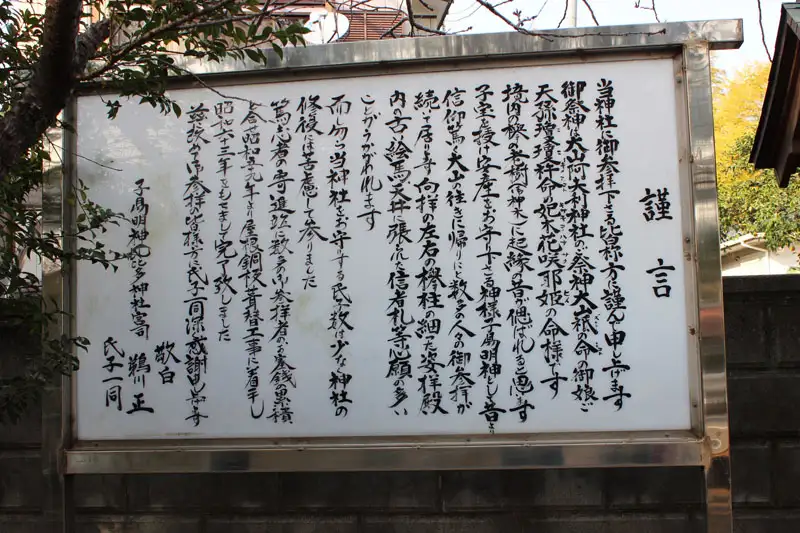 謹言
当神社に御参拝下さる皆様方に謹んで申し上げます
御祭神は大山阿夫利神社の祭神大山祇の命の御娘ご
天孫瓊瓊杵命の妃木花咲耶姫の命様です
境内の欅の老樹(御神木)に起縁し昔が偲ばれると思います
子宝を授け安産をお守り下さる神様子易明神とし昔より
信仰篤く大山の往きに帰りに数多の人の御参拝が
続いて居ります 向拝の左右の欅柱の細た姿拝殿
内の古い絵馬天井に張られた信者札等心願の多い
ことがうかがわれます
而し乍ら当神社をお守りする氏子数が少なく神社の
修復には苦慮して参りました
篤志者の寄進と数多の御参拝者のお賽銭の累積
により屋根銅板葺替工事に着手し
昭和六十二年をもちまして完了致しました
茲に御参拝の皆様方に氏子一同深く感謝申し上げます
敬白
子易明神比々多神社宮司 鵜川 正
氏子一同